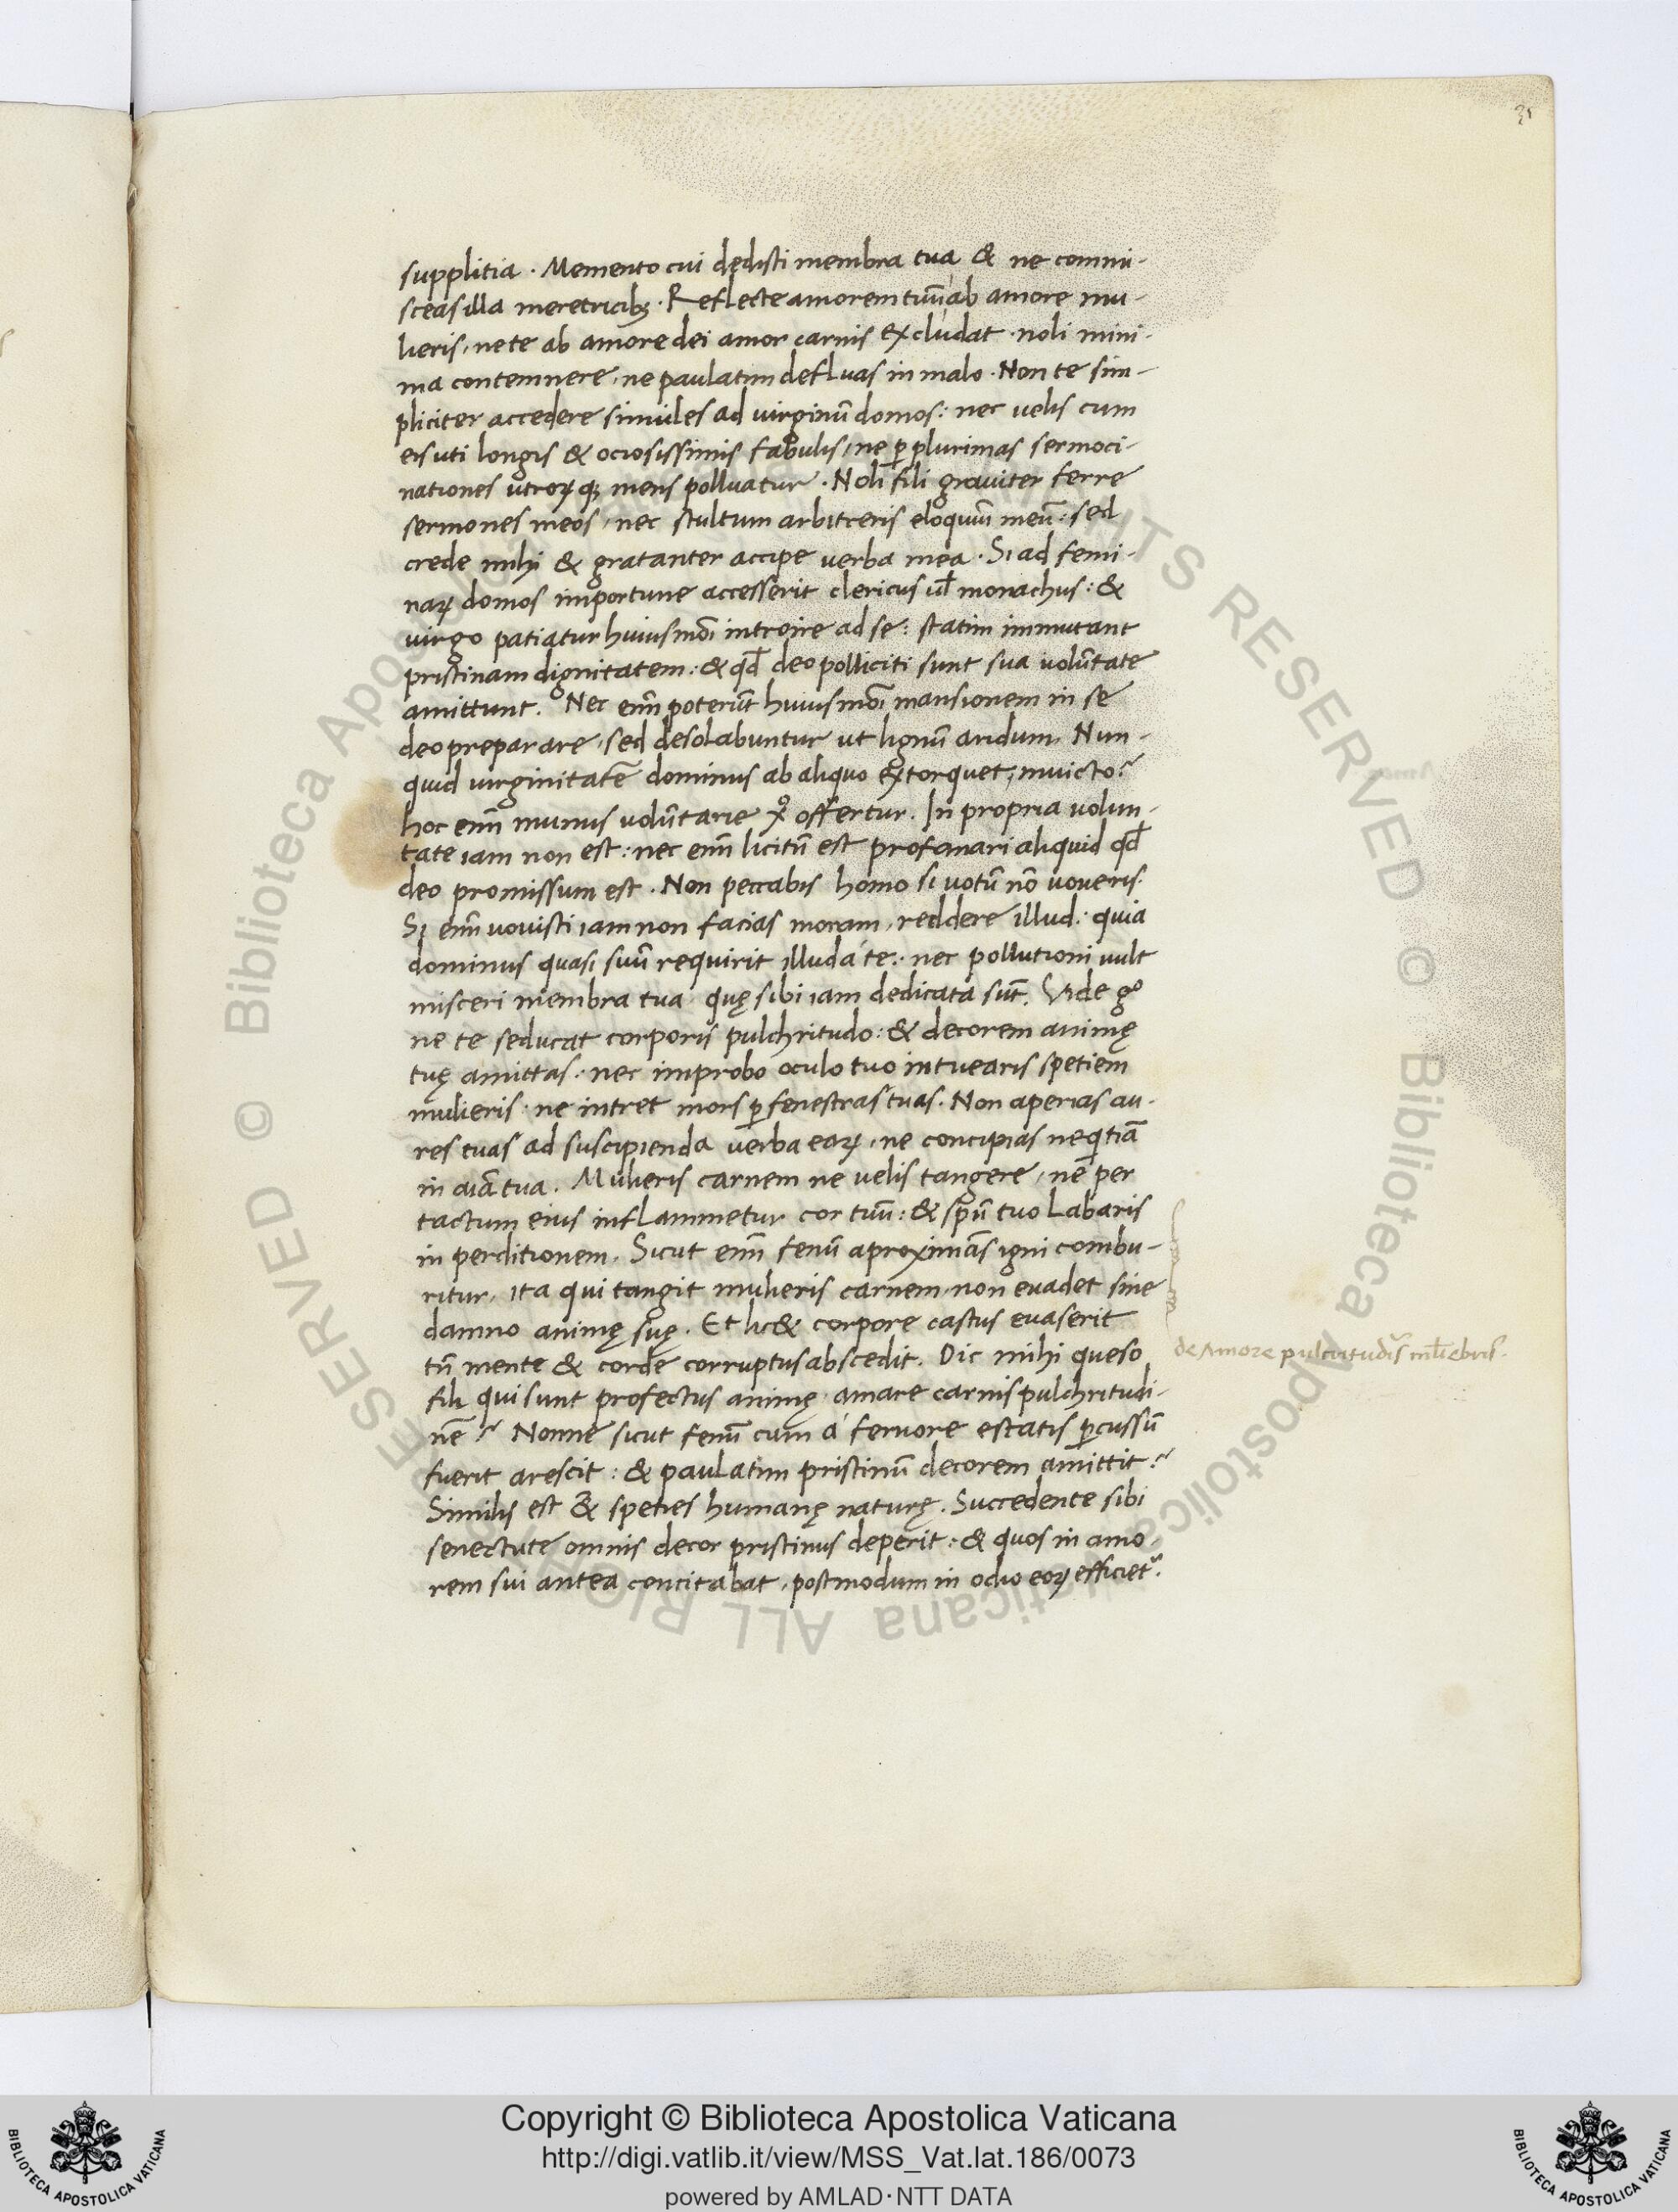 31
supplitia · Memento cui dedisti membra tua & ne commi-
sceas illa meretricibꝫ · Reflecte amorem tuū ab amore mu-
lieris, ne te ab amore dei amor carnis excludat · noli mini-
ma contemnere, ne paulatim defluas in malo · Non te sim-
pliciter accedere simules ad virginū domos: nec velis cum
eis uti longis & ociosissimis fabulis, ne ꝑ plurimas sermoci-
nationes utroꝝqꝫ mens polluatur · Noli fili graviter ferre
sermones meos, nec stultum arbitreris eloquiū meū: sed
crede mihi & gratanter accipe verba mea · Si ad femi-
naꝝ domos importune accesserit clericus ul̄ monachus: &
virgo patiatur huiusmōi introire ad se: statim immutant
pristinam dignitatem: & qd̄ deo polliciti sunt sua volūtate
amittunt. Nec eni̅ poterūt huiusmōi mansionem in se
deo preparare, sed desolabuntur ut lignū aridum. Nun-
quid virginitatē dominus ab aliquo extorquet, invicto?
hoc eni̅ munus volūtarie xº offertur. In propria volun-
tate iam non est: nec eni̅ licitū est profanari aliquid qd̄
deo promissum est. Non peccabis homo si votū nō voveris.
Si eni̅ vovisti iam non facias moram, reddere illud: quia
dominus quasi suū requirit illud á te: nec pollutioni vult
misceri membra tua quę sibi iam dedicata sūt. Vide gº
ne te seducat corporis pulchritudo: & decorem animę
tuę amittas: nec improbo oculo tuo intuearis spetiem
mulieris · ne intret mors ꝑ fenestras tuas. Non aperias au-
res tuas ad suscipienda verba eaꝝ, ne concipias neqitiā
in aīa tua. Mulieris carnem ne velis tangere, ne per
tactum eius inflammetur cor tuū: & spū tuo labaris
in perditionem. Sicut eni̅ fenū aproximās igni combu-
ritur, ita qui tangit mulieris carnem, non evadet sine
damno animę suę. Et lic& corpore castus evaserit
tn̄ mente & corde corruptus abscedit. Dic mihi queso
fili qui sunt profectus animę amare carnis pulchritudi-
nē? Nonne sicut fenū cum á fervore estatis ꝑcussū
fuerit arescit: & paulatim pristinū decorem amittit?
Similis est & speties humanę naturę. Succedente sibi
senectute omnis decor pristinus deperit: & quos in amo-
rem sui antea concitabat, postmodum in odio eoꝝ efficiet᷑.
de Amore pulcritudīs ml̄iebris.
Copyright © Biblioteca Apostolica Vaticana
http://digi.vatlib.it/view/MSS_Vat.lat.186/0073
powered by AMLAD·NTT DATA
BIBLIOTECA APOSTOLICA VATICANA
BIBLIOTECA APOSTOLICA VATICANA